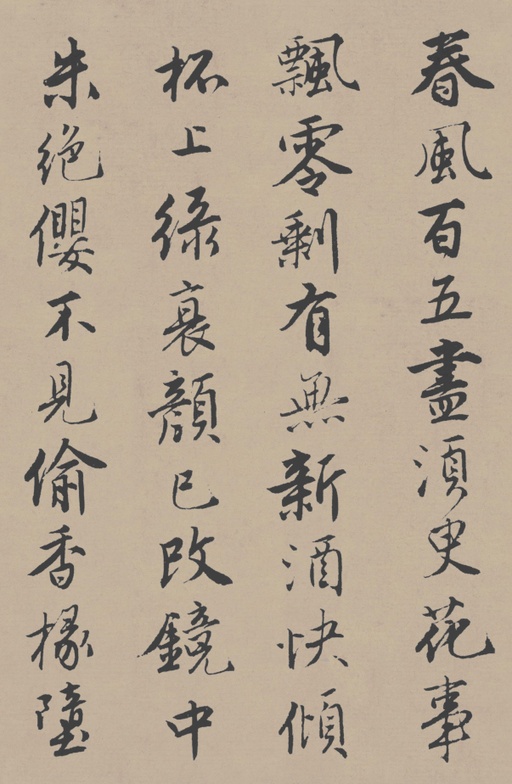 春風百五盡湏臾花事
飄零剩有無新酒快傾
杯上綠衰顏已改鏡中
朱絕纓不見偷香掾墮